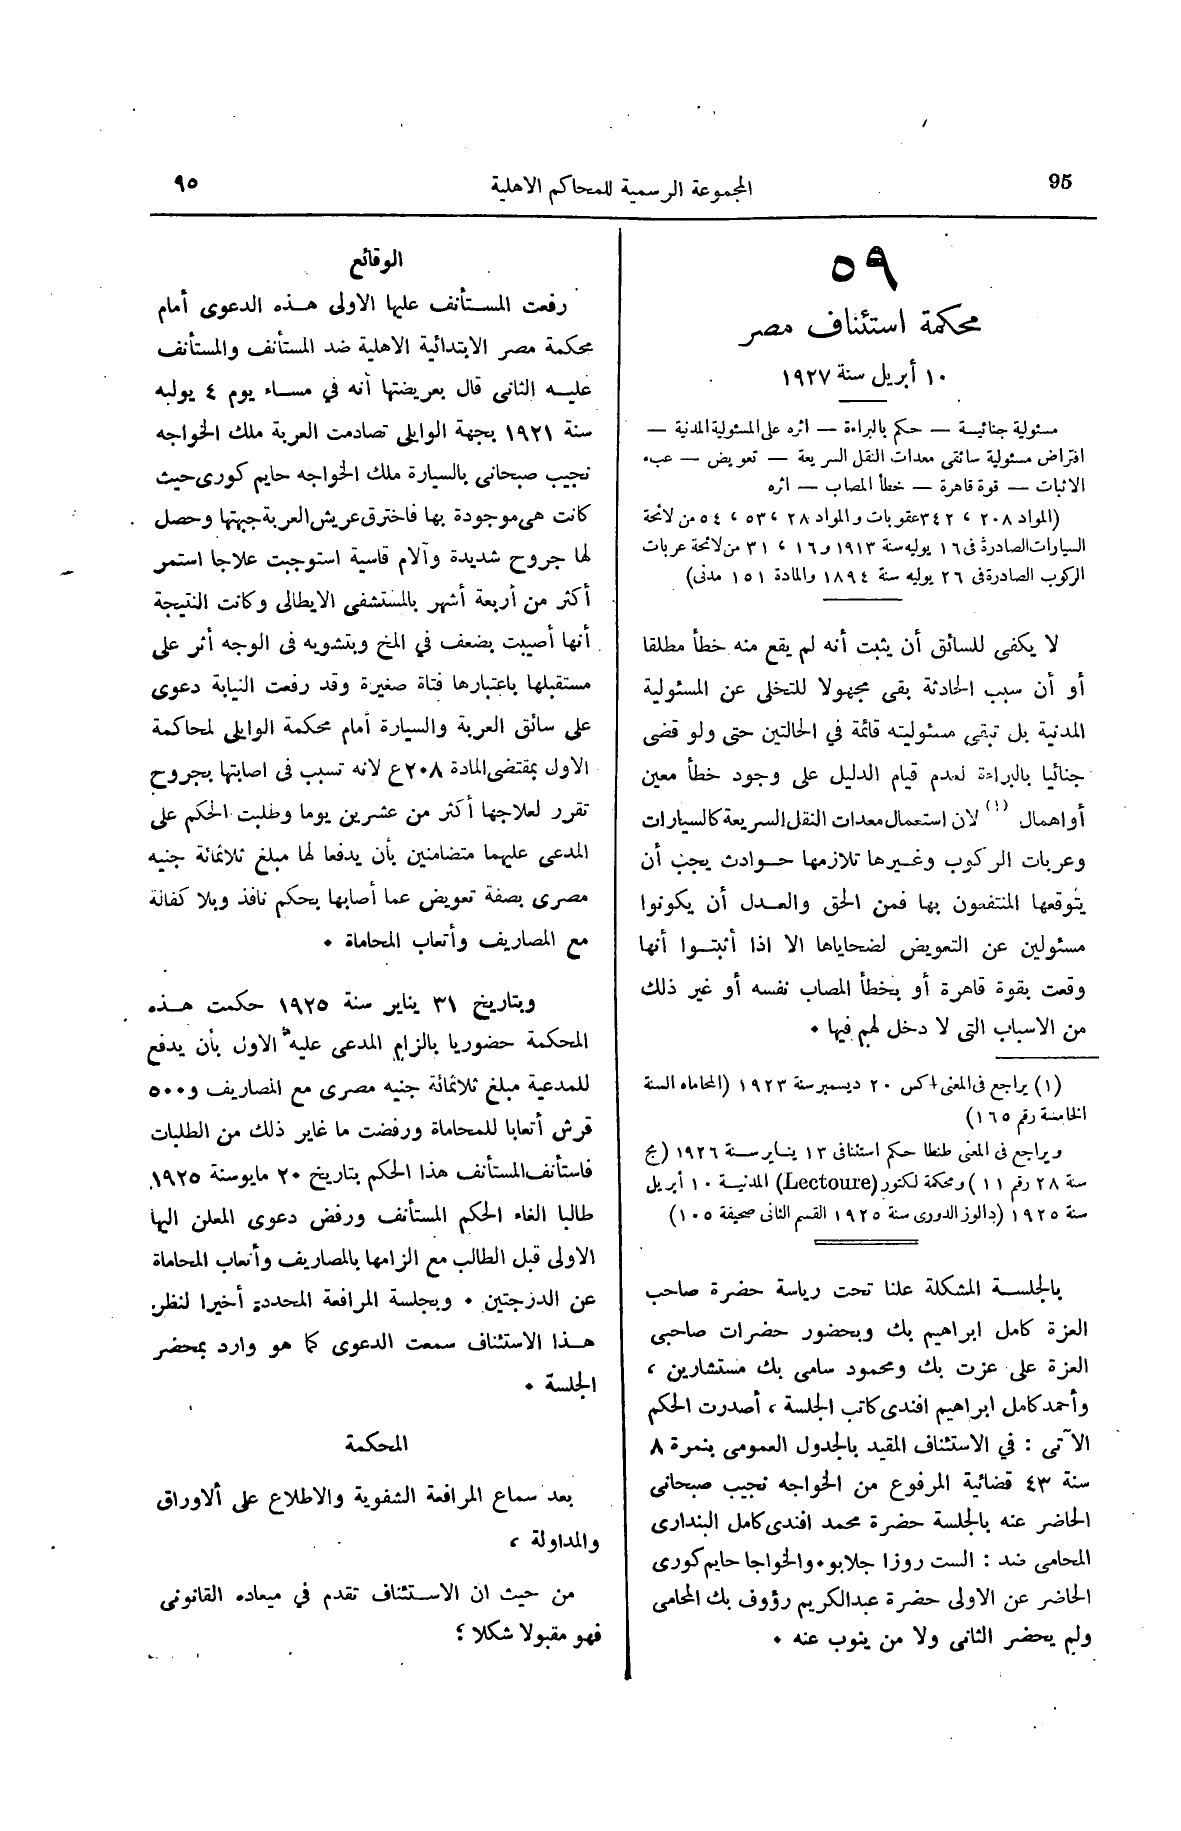 95
المجموعة الرسمية للمحاكم الاهلية
٩٥
٥٩
محكمة استئناف مصر
١٠ أبريل سنة ١٩٢٧
مسئولية جنائية — حكم بالبراءة — اثره على المسئولية المدنية —
افتراض مسئولية سائقى معدات النقل السريعة — تعويض — عبء
الاثبات — قوة قاهرة — خطأ المصاب — اثره
(المواد ٢٠٨ ، ٣٤٢ عقوبات والمواد ٢٨ ،٥٣ ، ٥٤ من لائحة
السيارات الصادرة فى ١٦ يوليه سنة ١٩١٣ و١٦ ، ٣١ من لائحة عربات
الركوب الصادرة فى ٢٦ يوليه سنة ١٨٩٤ والمادة ١٥١ مدنى)
لا يكفى للسائق أن يثبت أنه لم يقع منه خطأ مطلقا
أو أن سبب الحادثة بقى مجهولا للتخلى عن المسئولية
المدنية بل تبقى مسئوليته قائمة في الحالتين حتى ولو قضى
جنائيا بالبراءة لعدم قيام الدليل على وجود خطأ معين
أو اهمال (١) لان استعمال معدات النقل السريعة كالسيارات
وعربات الركوب وغيرها تلازمها حوادث يجب أن
يتوقعها المنتفعون بها فمن الحق والعدل أن يكونوا
مسئولين عن التعويض لضحاياها الا اذا أثبتوا أنها
وقعت بقوة قاهرة أو بخطأ المصاب نفسه أو غير ذلك
من الاسباب التى لا دخل لهم فيها .
(١) يراجع فى المعنى عكس ٢٠ ديسمبر سنة ١٩٢٣ (المحاماه السنة
الخامسة رقم ١٦٥)
ويراجع فى المعنى طنطا حكم استئنافى ١٣ يناير سنة ١٩٢٦ (مج
سنة ٢٨ رقم ١١) ومحكمة لكتور (Lectoure) المدنية ١٠ أبريل
سنة ١٩٢٥ (دالوز الدورى سنة ١٩٢٥ القسم الثانى صحيفة ١٠٥)
بالجلسة المشكلة علنا تحت رياسة حضرة صاحب
العزة كامل ابراهيم بك وبحضور حضرات صاحبى
العزة على عزت بك ومحمود سامى بك مستشارين ،
وأحمد كامل ابراهيم افندى كاتب الجلسة ، أصدرت الحكم
الآتى : في الاستئناف المقيد بالجدول العمومى بنمرة ٨
سنة ٤٣ قضائية المرفوع من الخواجه نجيب صبحانى
الحاضر عنه بالجلسة حضرة محمد افندى كامل البندارى
المحامى ضد : الست روزا جلابو . والخواجا حايم كورى
الحاضر عن الاولى حضرة عبد الكريم رؤوف بك المحامى
ولم يحضر الثانى ولا من ينوب عنه .
الوقائع
رفعت المستأنف عليها الاولى هذه الدعوى أمام
محكمة مصر الابتدائية الاهلية ضد المستأنف والمستأنف
عليه الثانى قال بعريضتها أنه في مساء يوم ٤ يوليه
سنة ١٩٢١ بجهة الوايلى تصادمت العربة ملك الخواجه
نجيب صبحانى بالسيارة ملك الخواجه حايم كورى حيث
كانت هى موجودة بها فاخترق عريش العربة جبهتها وحصل
لها جروح شديدة وآلام قاسية استوجبت علاجا استمر
أكثر من أربعة أشهر بالمستشفى الايطالى وكانت النتيجة
أنها أصيبت بضعف في المخ وبتشويه فى الوجه أثر على
مستقبلها باعتبارها فتاة صغيرة وقد رفعت النيابة دعوى
على سائق العربة والسيارة أمام محكمة الوايلى لمحاكمة
الاول بمقتضى المادة ٢٠٨ ع لانه تسبب فى اصابتها بجروح
تقرر لعلاجها أكثر من عشرين يوما وطلبت الحكم على
المدعى عليهما متضامنين بأن يدفعا لها مبلغ ثلاثمائة جنيه
مصرى بصفة تعويض عما أصابها بحكم نافذ وبلا كفالة
مع المصاريف وأتعاب المحاماة .
وبتاريخ ٣١ يناير سنة ١٩٢٥ حكمت هذه
المحكمة حضوريا بالزام المدعى عليه الاول بأن يدفع
للمدعية مبلغ ثلاثمائة جنيه مصرى مع المصاريف و٥٠٠
قرش أتعابا للمحاماة ورفضت ما غاير ذلك من الطلبات
فاستأنف المستأنف هذا الحكم بتاريخ ٢٠ مايو سنة ١٩٢٥
طالبا الغاء الحكم المستأنف ورفض دعوى المعلن اليها
الاولى قبل الطالب مع الزامها بالمصاريف وأتعاب المحاماة
عن الدرجتين . وبجلسة المرافعة المحددة أخيرا لنظر
هذا الاستئناف سمعت الدعوى كما هو وارد بمحضر
الجلسة .
المحكمة
بعد سماع المرافعة الشفوية والاطلاع على ألاوراق
والمداولة ،
من حيث ان الاستئناف تقدم في ميعاده القانونى
فهو مقبولا شكلا ؛